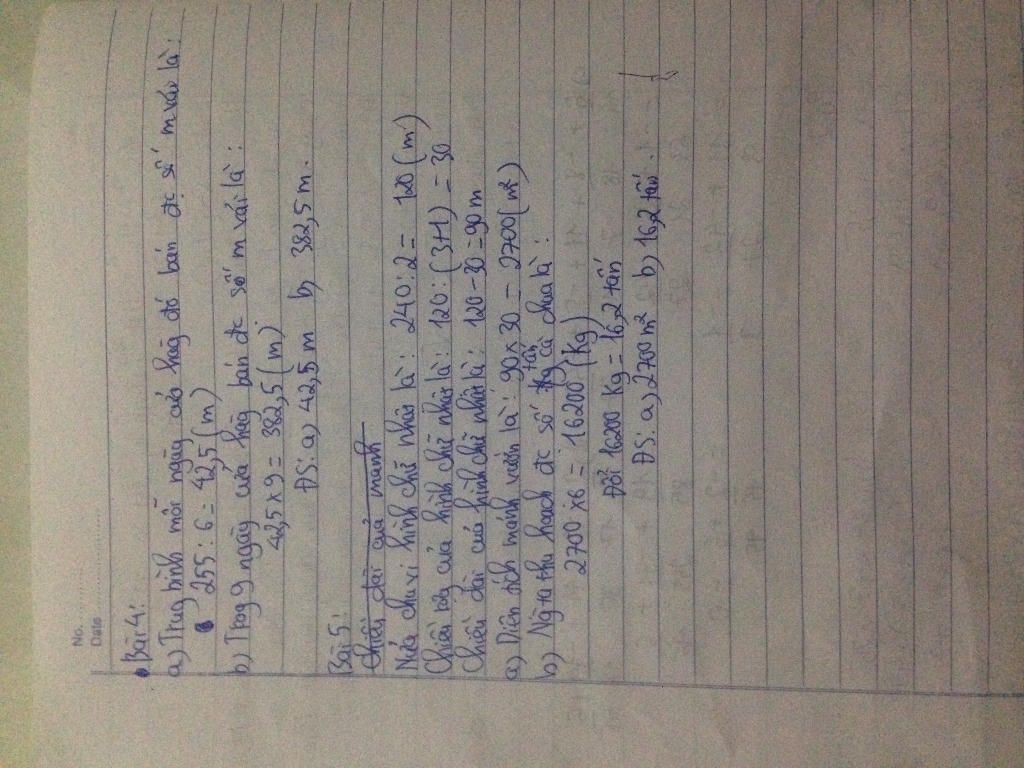 No.
Date
Bài 4:
a) Trung bình mỗi ngày cửa hàg đó bán đc số m vải là:
255 : 6 = 42,5 (m)
b) Trog 9 ngày cửa hàg bán đc số m vải là:
42,5 x 9 = 382,5 (m)
ĐS: a) 42,5 m b, 382,5 m.
Bài 5:
chiều dài của mảnh
Nửa chu vi hình chữ nhật là: 240 : 2 = 120 (m)
Chiều rộg của hình chữ nhật là: 120 : (3+1) = 30
Chiều dài của hình chữ nhật là: 120 - 30 = 90 m
a) Diện tích mảnh vườn là: 90 x 30 = 2700 (m²)
b) Ng ta thu hoạch đc số tấn cà chua là:
2700 x 6 = 16200 (kg)
Đổi 16200 kg = 16,2 tấn
ĐS: a, 2700 m² b) 16,2 tấn.